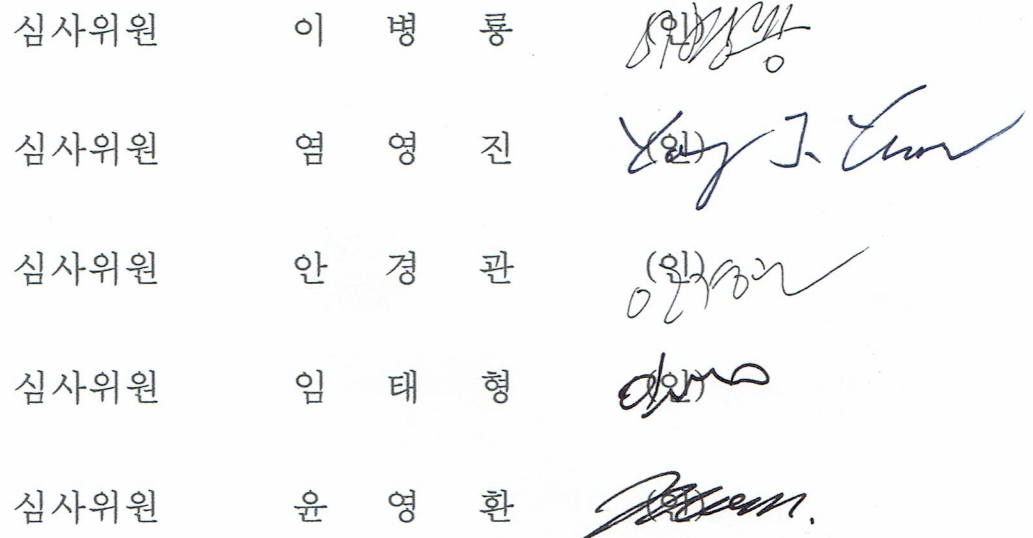 심사위원 이 병 룡 (인)
심사위원 염 영 진 (인)
심사위원 안 경 관 (인)
심사위원 임 태 형 (인)
심사위원 윤 영 환 (인)